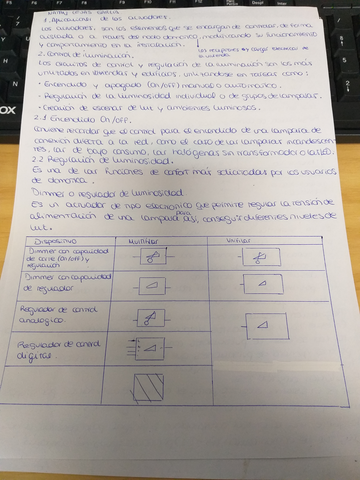 1. Aplicaciones de los actuadores.
Los actuadores, son los elementos que se encargan de controlar, de forma
cableada o a través del nodo domótico, motivando su funcionamiento
y comportamiento en la instalación.
los receptores y cargas
2. Control de iluminación.
Los circuitos de control y regulación de la iluminación son los más
utilizados en viviendas y edificios, utilizándose en tareas como:
• Encendido y apagado (On/off) manual o automático.
• Regulación de la luminosidad individual o de grupos de lámparas.
• Creación de escenas de luz y ambientes luminosos.
2.1 Encendido On/OFF.
Conviene recordar que el control para el encendido de una lámpara de
conexión directa a la red, como el caso de las lámparas incandescen-
tes, las de bajo consumo, las halógenas sin transformador o
2.2 Regulación de luminosidad.
Es una de las funciones de confort más solicitadas por los usuarios
de domótica.
Dimmer o regulador de luminosidad
Es un actuador de tipo electrónico que permite regular la tensión de
alimentación de una lámpara para así, conseguir diferentes niveles de
luz.
Dispositivo Multifilar Unifilar
Dimmer con capacidad
de corte (On/off) y
regulación
Dimmer con capacidad
de regulador
Regulador de control
analógico
Regulador de control
digital.